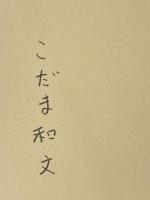 こだま和文